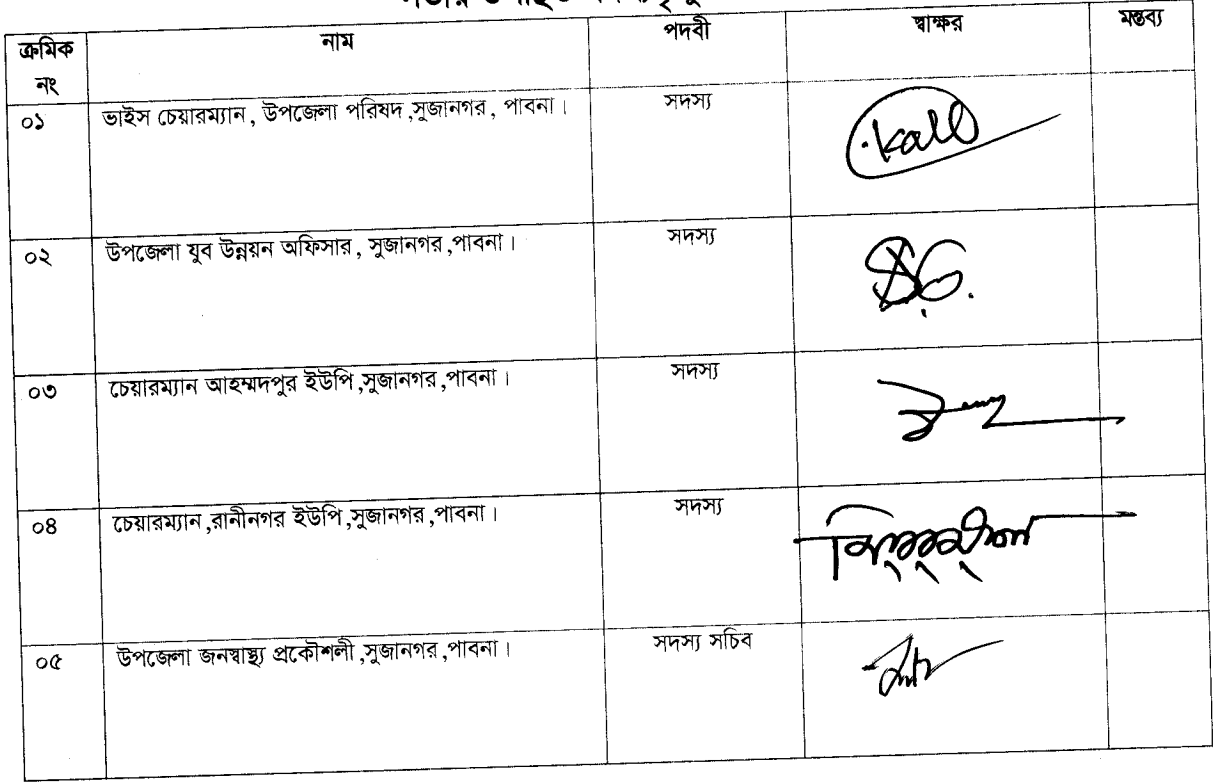 ক্রমিক নং নাম পদবী স্বাক্ষর মন্তব্য
০১ ভাইস চেয়ারম্যান, উপজেলা পরিষদ ,সুজানগর, পাবনা। সদস্য
০২ উপজেলা যুব উন্নয়ন অফিসার, সুজানগর ,পাবনা। সদস্য
০৩ চেয়ারম্যান আহম্মদপুর ইউপি ,সুজানগর ,পাবনা। সদস্য
০৪ চেয়ারম্যান ,রানীনগর ইউপি ,সুজানগর ,পাবনা। সদস্য
০৫ উপজেলা জনস্বাস্থ্য প্রকৌশলী ,সুজানগর ,পাবনা। সদস্য সচিব